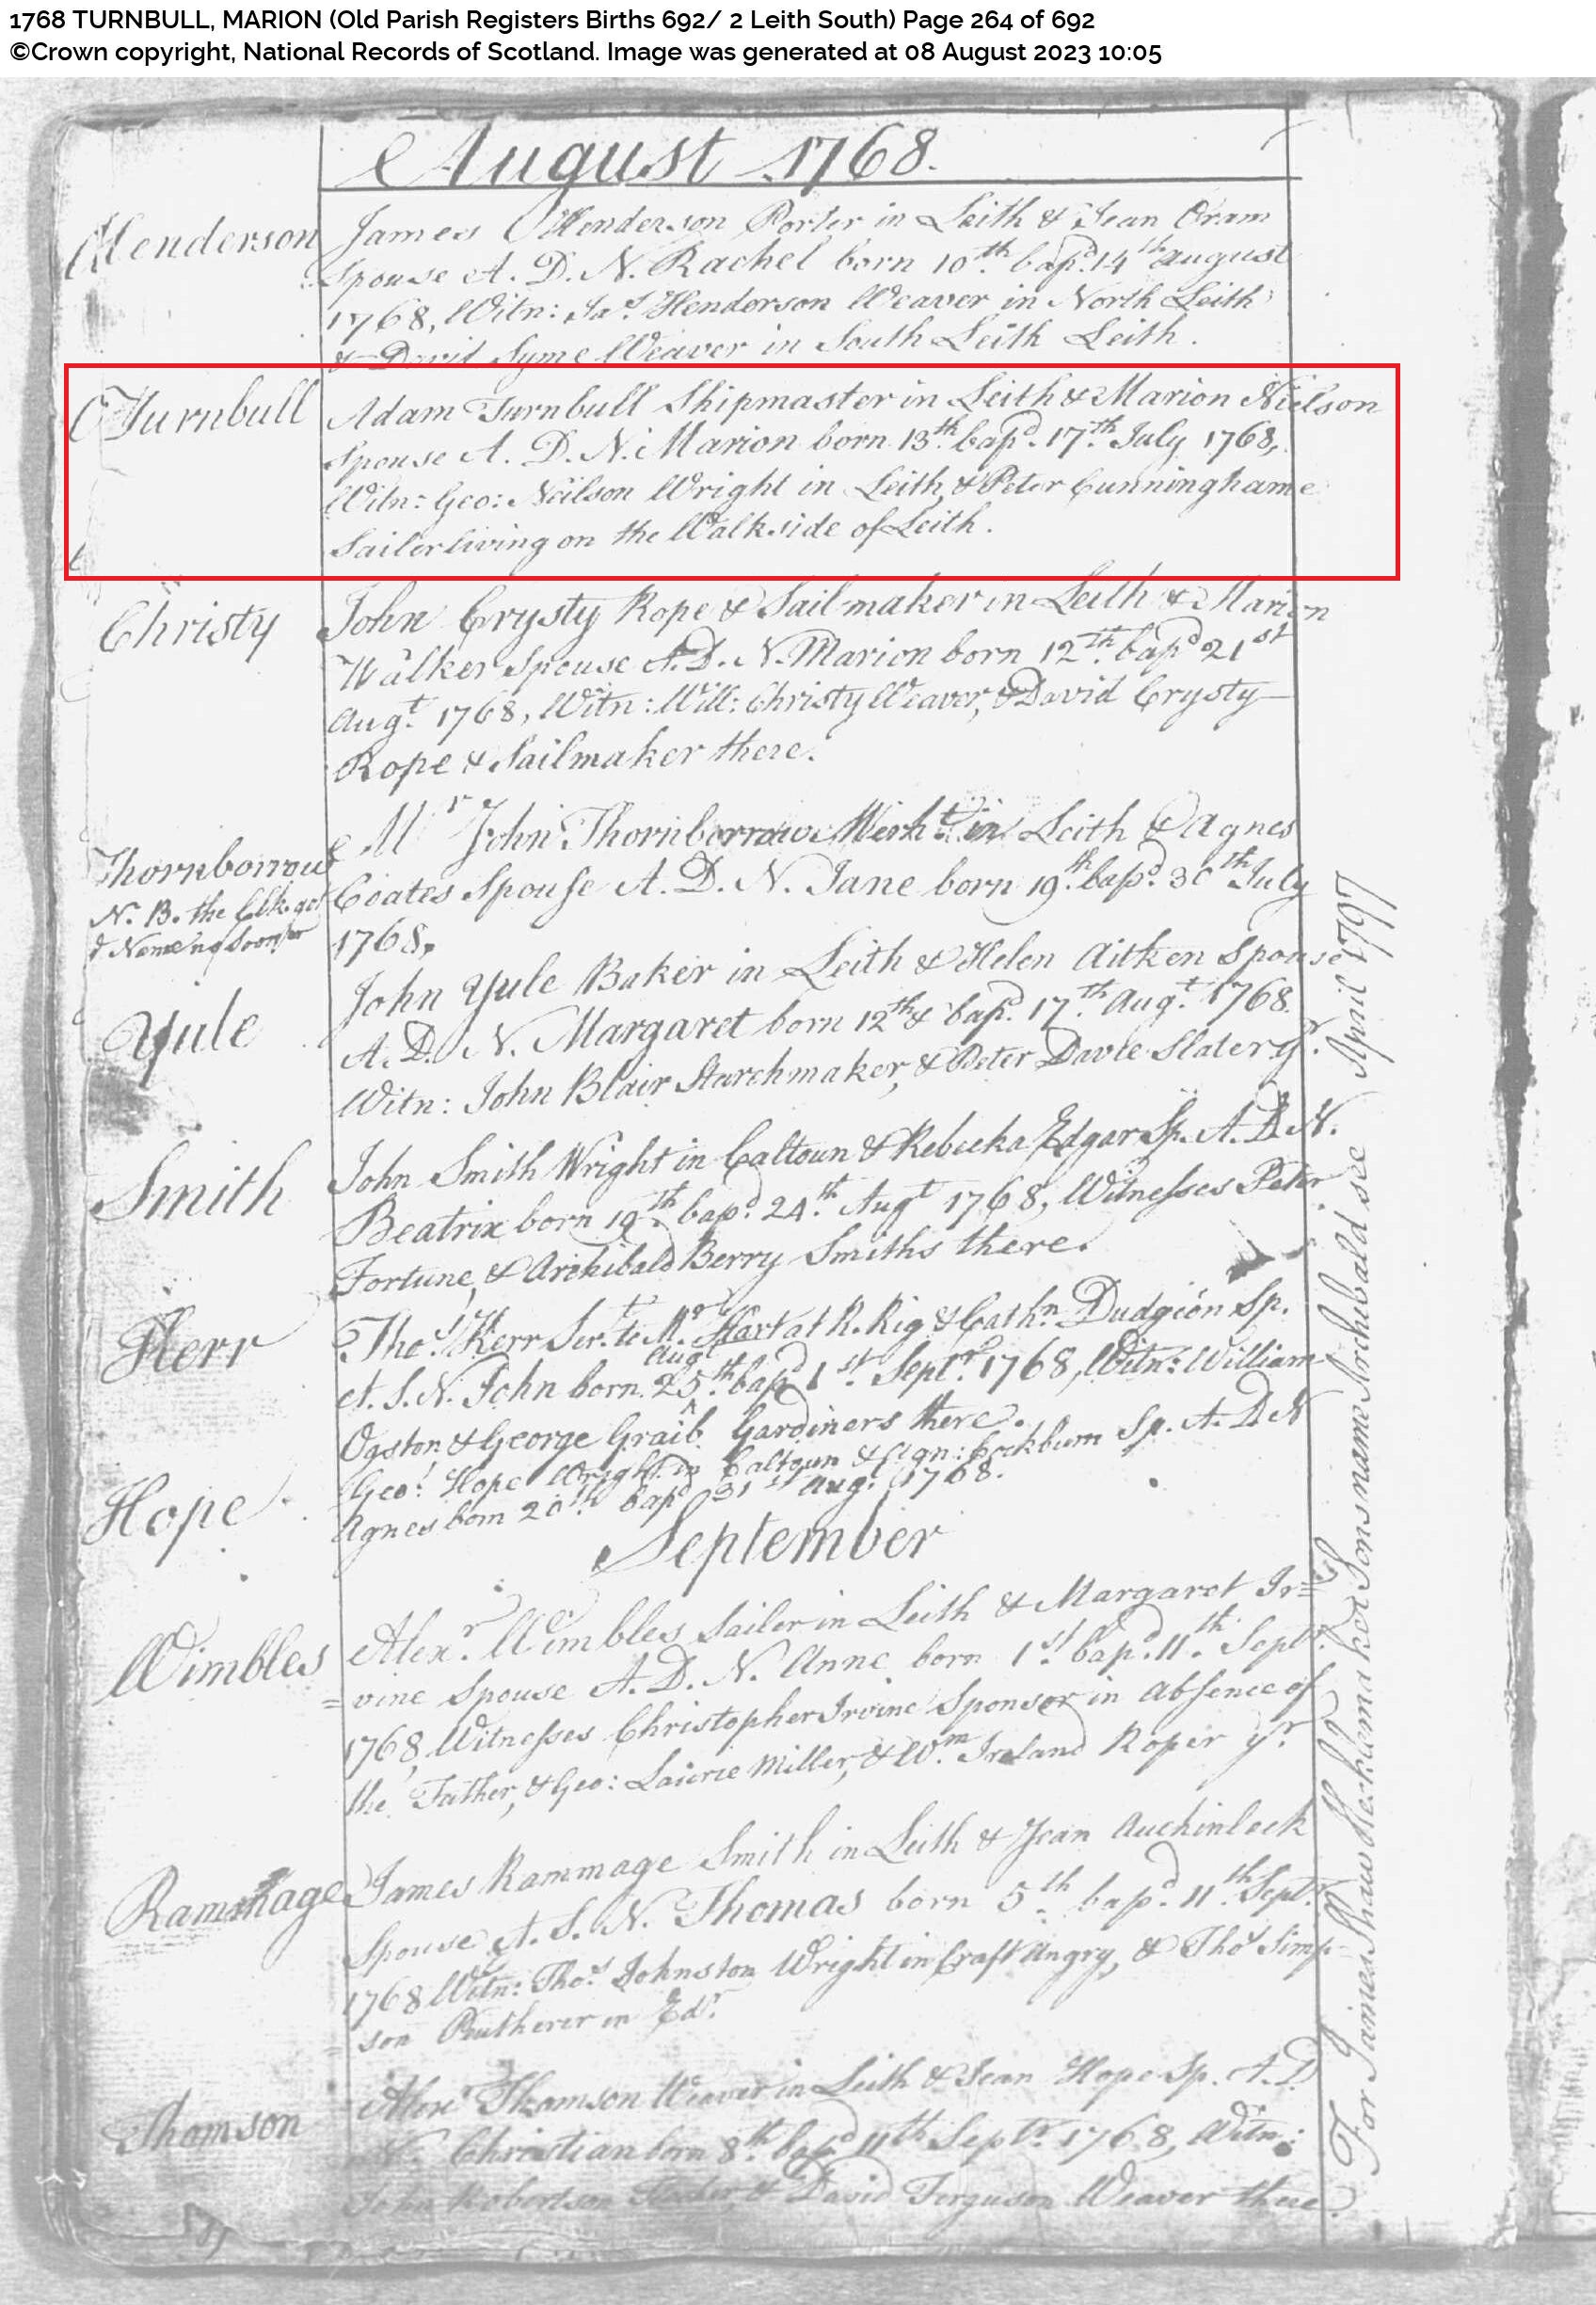 1768 TURNBULL, MARION (Old Parish Registers Births 692/ 2 Leith South) Page 264 of 692
©Crown copyright, National Records of Scotland. Image was generated at 08 August 2023 10:05
August 1768.
Henderson
James Henderson Porter in Leith & Jean Oram
Spouse A. D. N. Rachel born 10.th bapd. 14th August
1768, Witn: Jas. Henderson Weaver in North Leith
& David Syme Weaver in South Leith Leith.
Turnbull
Adam Turnbull Shipmaster in Leith & Marion Nielson
Spouse A. D. N. Marion born 13th. bapd. 17.th July 1768,
Witn: Geo: Neilson Wright in Leith, & Peter Cunninghame
Sailer living on the Walkside of Leith.
Christy
John Crysty Rope & Sail-maker in Leith & Marion
Walker Spouse A. D. N. Marion born 12th. bapd 21st
Augt. 1768, Witn: Will: Christy Weaver, & David Crysty
Rope & Sailmaker there.
Thornborrow
N. B. the Clk. got
Name no sooner
Mr John Thornborrow Mercht. in Leith & Agnes
Coates Spouse A. D. N. Jane born 19.th bapd. 30th July
1768.
Yule
John Yule Baker in Leith & Helen Aitken Spouse
A. D. N. Margaret born 12th & bapd. 17.th Augt. 1768.
Witn: John Blair Starchmaker, & Peter Davie Slater yr.
Smith
John Smith Wright in Caltoun & Rebecka Edgar Sp. A. D. N.
Beatrix born 19th. bapd. 24.th Augt 1768, Witnesses Peter
Fortune, & Archibald Berry Smiths there.
Kerr
Thos. Kerr Sert. to Mr. Hart at R. Rig & Cathn. Dudgion Sp.
Augt
A. S. N. John born 25.th bapd 1st. Septr. 1768, Witn: William
Ogston & George Graib Gardiners there.
Hope
Geo: Hope Wright in Caltoun & Agn: Cockburn Sp. A. D N
Agnes born 20th. bapd 31st Augt. 1768.
September
Wimbles
Alexr. Wimbles Sailer in Leith & Margaret Ir=
=vine Spouse A. D. N. Anne born 1st. bapd. 11.th Septr.
1768, Witnesses Christopher Irvine Sponsor in absence of
the Father, & Geo: Laurie Miller, & Wm. Ireland Roper yr.
Rammage
James Rammage Smith in Leith & Jean Auchinleck
Spouse A. S. N. Thomas born 5th. bapd. 11.th Septr.
1768 Witn: Thos. Johnston Wright in Craft Angry, & Thos Simp=
=son Peutherer in Edr.
Thomson
Alexr Thomson Weaver in Leith & Jean Hope Sp. A. D.
N. Christian born 8th. bapd 11th Septr. 1768, Witn:
John Robertson & David Ferguson Weaver there.
For James Shaw Hecklemaker Sons name Archibald see April 1797